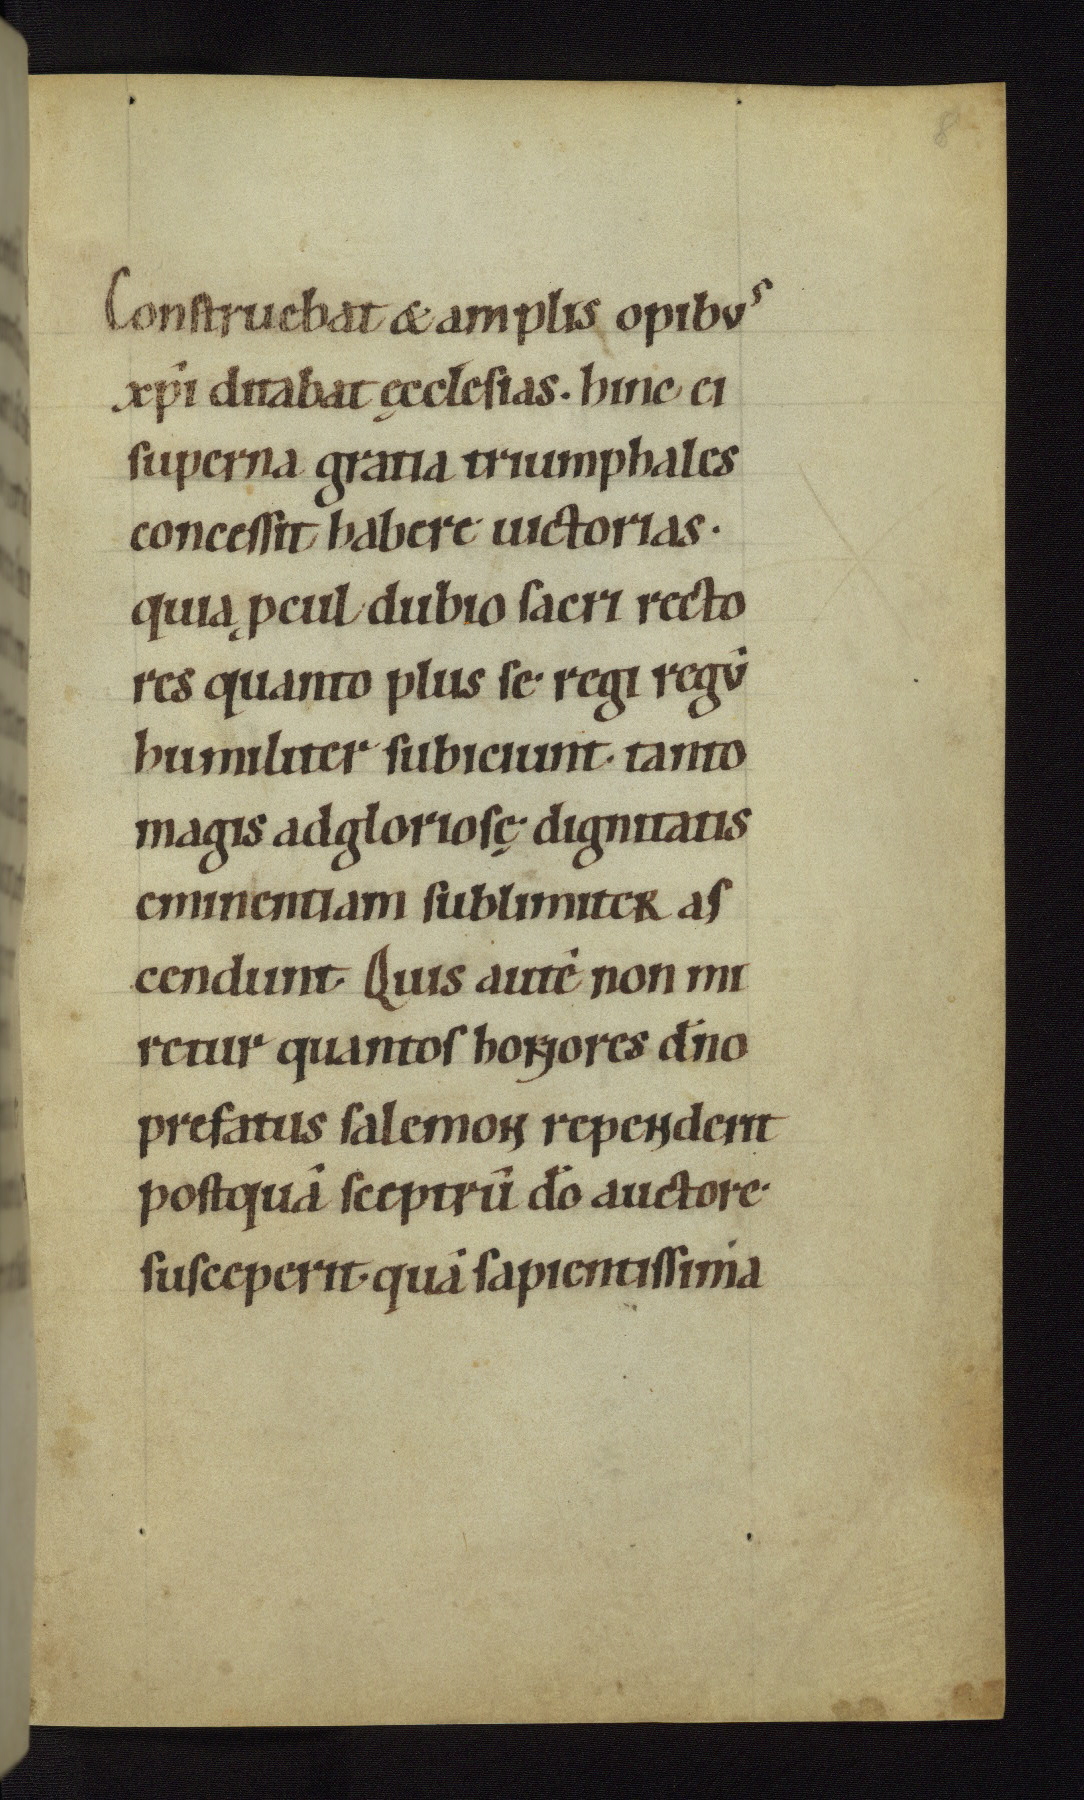 8
Construebat & amplis opibus
xp̄i ditabat ęcclesias. hinc ei
superna gratia triumphales
concessit habere uictorias.
quia ꝓcul dubio sacri recto
res quanto plus se regi regū
humiliter subiciunt. tanto
magis ad gloriosę dignitatis
eminentiam sublimiter as
cendunt. Quis autē non mi
retur quantos honores dn̄o
prefatus salemon rependerit
postquā sceptrū dō auctore
susceperit. quā sapientissima